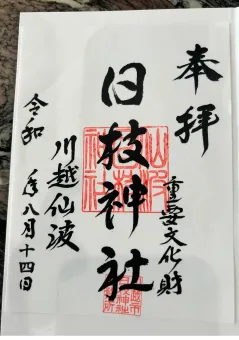 奉拝
重要文化財
日枝神社
川越仙波
令和 年八月十四日